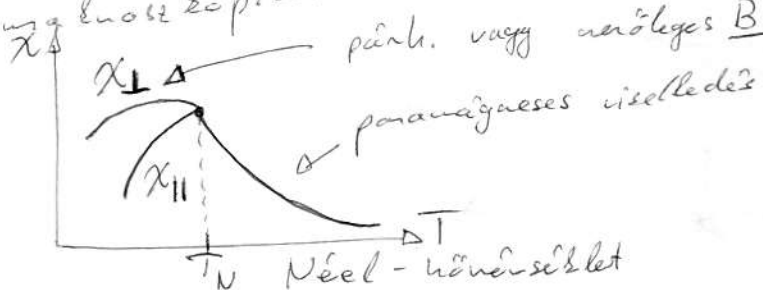 χ
párh. vagy merőleges B
χ⊥
paramágneses viselkedés
χ||
T
T_N Néel-hőmérséklet